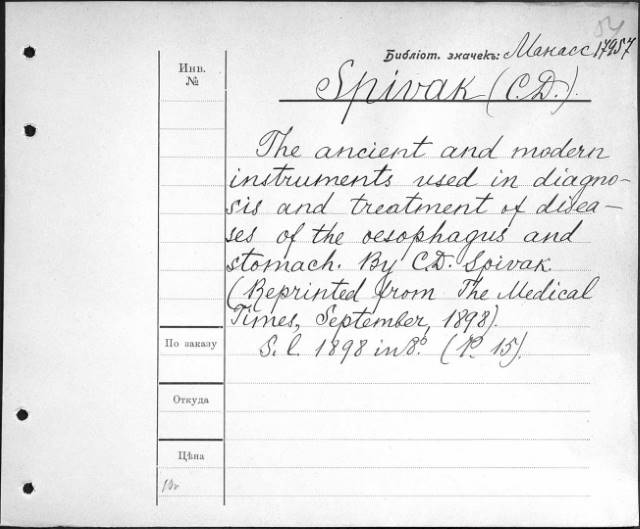 Библіот. значекъ: Манасс 17957
Инв.
№
Spivak (C.D.).
The ancient and modern
instruments used in diagno-
sis and treatment of disea-
ses of the oesophagus and
stomach. By C.D. Spivak
(Reprinted from The Medical
Times, September, 1898).
S. l. 1898 in 8º. (P. 15).
По заказу
Откуда
Цѣна